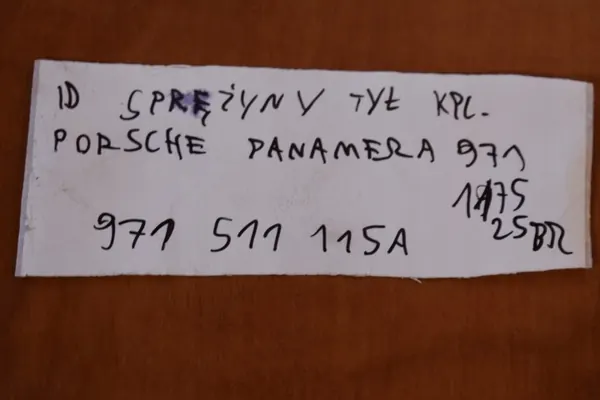 ID SPRĘŻYNY TYŁ KPL.
PORSCHE PANAMERA 971
971 511 115A
25BR